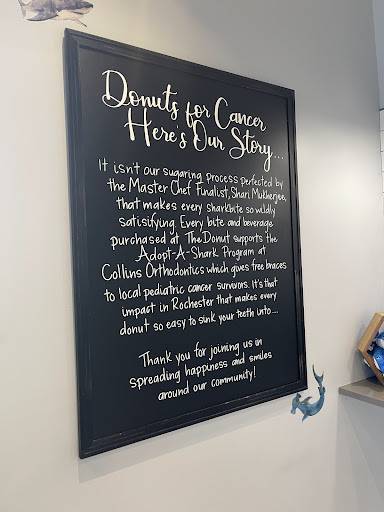 Donuts for Cancer
Here's Our Story...
It isn't our sugaring process perfected by
the Master Chef Finalist, Shari Mukherjee,
that makes every sharkbite so wildly
satisifying. Every bite and beverage
purchased at The Donut supports the
Adopt-A-Shark Program at
Collins Orthodontics which gives free braces
to local pediatric cancer survivors. It's that
impact in Rochester that makes every
donut so easy to sink your teeth into....
Thank you for joining us in
spreading happiness and smiles
around our community!